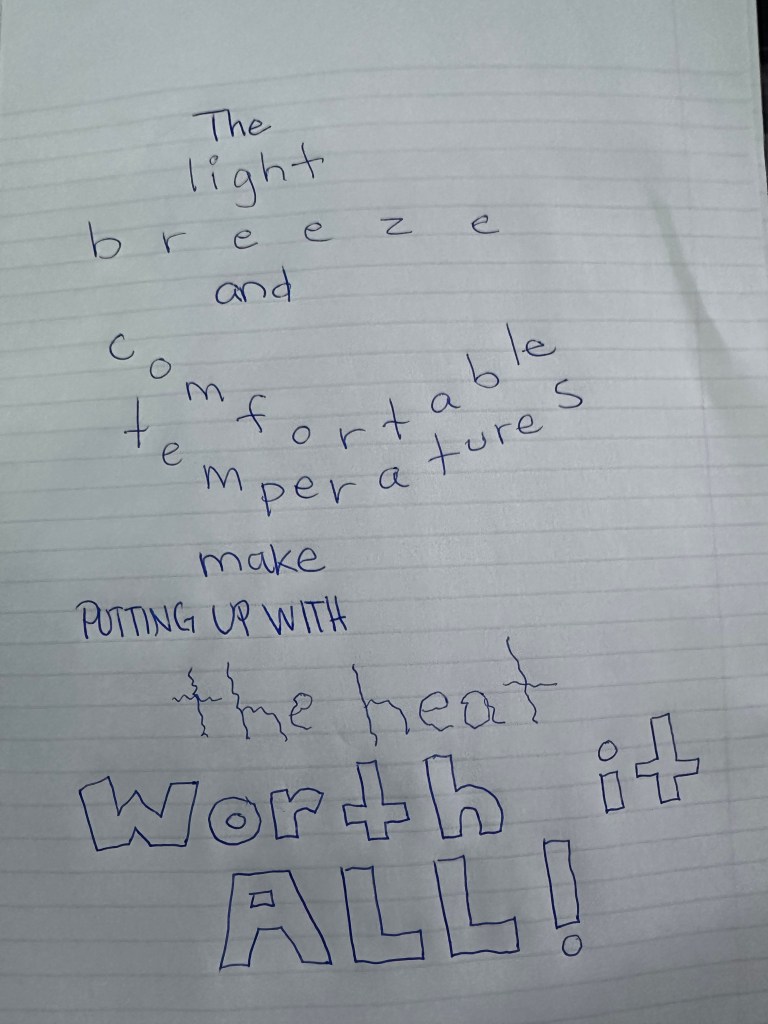 The
light
breeze
and
comfortable
temperatures
make
PUTTING UP WITH
the heat
worth it
ALL!